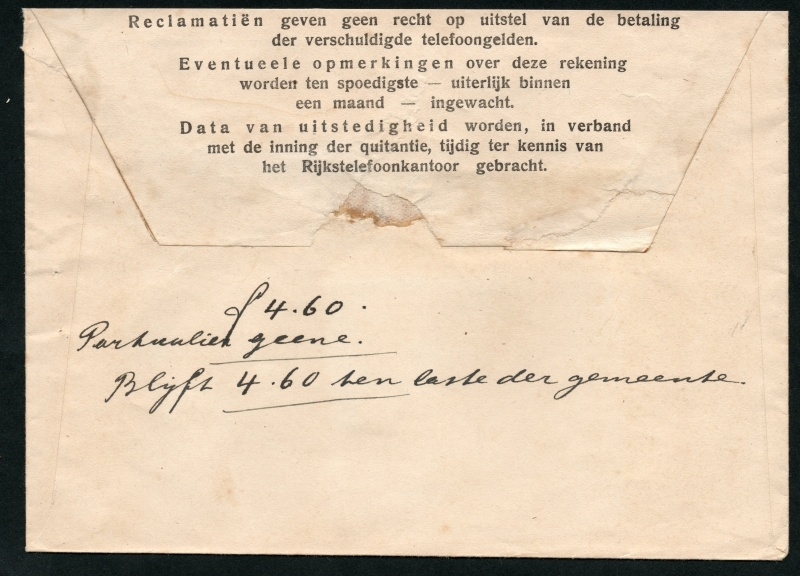 Reclamatiën geven geen recht op uitstel van de betaling
der verschuldigde telefoongelden.
Eventueele opmerkingen over deze rekening
worden ten spoedigste — uiterlijk binnen
een maand — ingewacht.
Data van uitstedigheid worden, in verband
met de inning der quitantie, tijdig ter kennis van
het Rijkstelefoonkantoor gebracht.
f 4.60.
Partikulier geene.
Blijft 4.60 ten laste der gemeente.